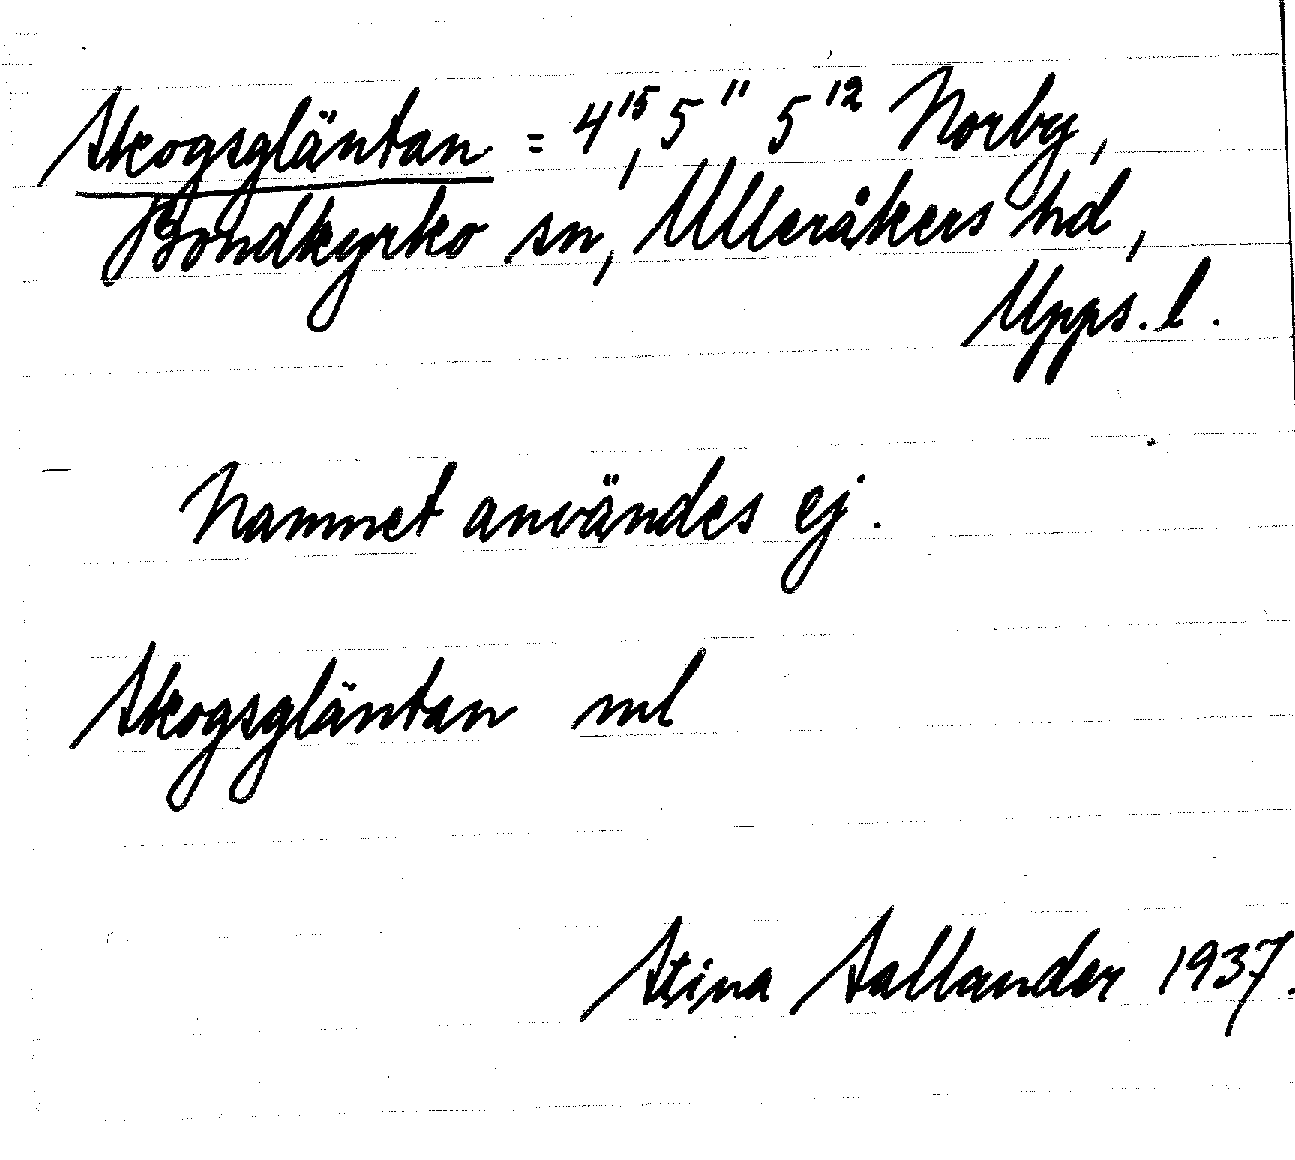 Skogsgläntan = 4¹⁵, 5¹¹ 5¹² Norby,
Bondkyrko sn, Ulleråkers hd,
Upps. l.
Namnet användes ej.
Skogsgläntan ml
Stina Sallander 1937.